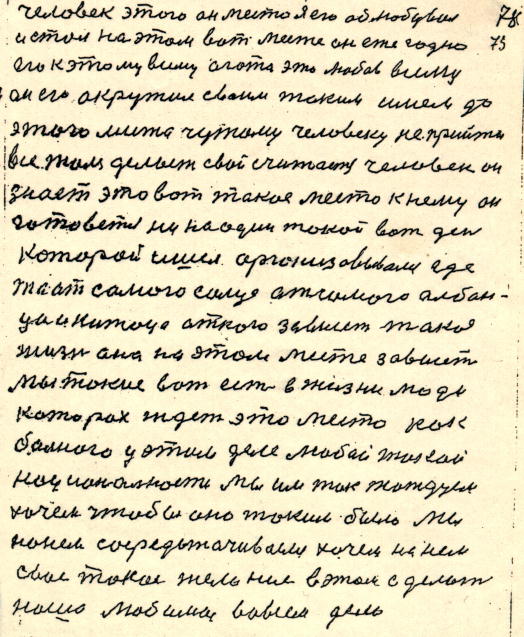 человек этого он место я его облюбувал 78
и стоя на этом вот месте он ежегодно 73
его к этому всему охота это любов всему
он его окружил своим таким имел до
этого места чужому человеку не прийти
все там делает свой считает человек он
знает это вот такое место к нему он
готовется ни на один такой вот ден
которой имел организовывали где
самого солце от самого албан-
ца и китоца от кого зависит такое
жизн она на этом месте зависет
мы такие вот ест в жизни люди
которох ждет это место как
болного у этом деле любой такой
национальности мы им так жаждуем
хочем чтобы оно таким было мы
нанем сосредотачиваем хочем на нем
свое такое желание в этом сделат
нашо любимое вовсем дело